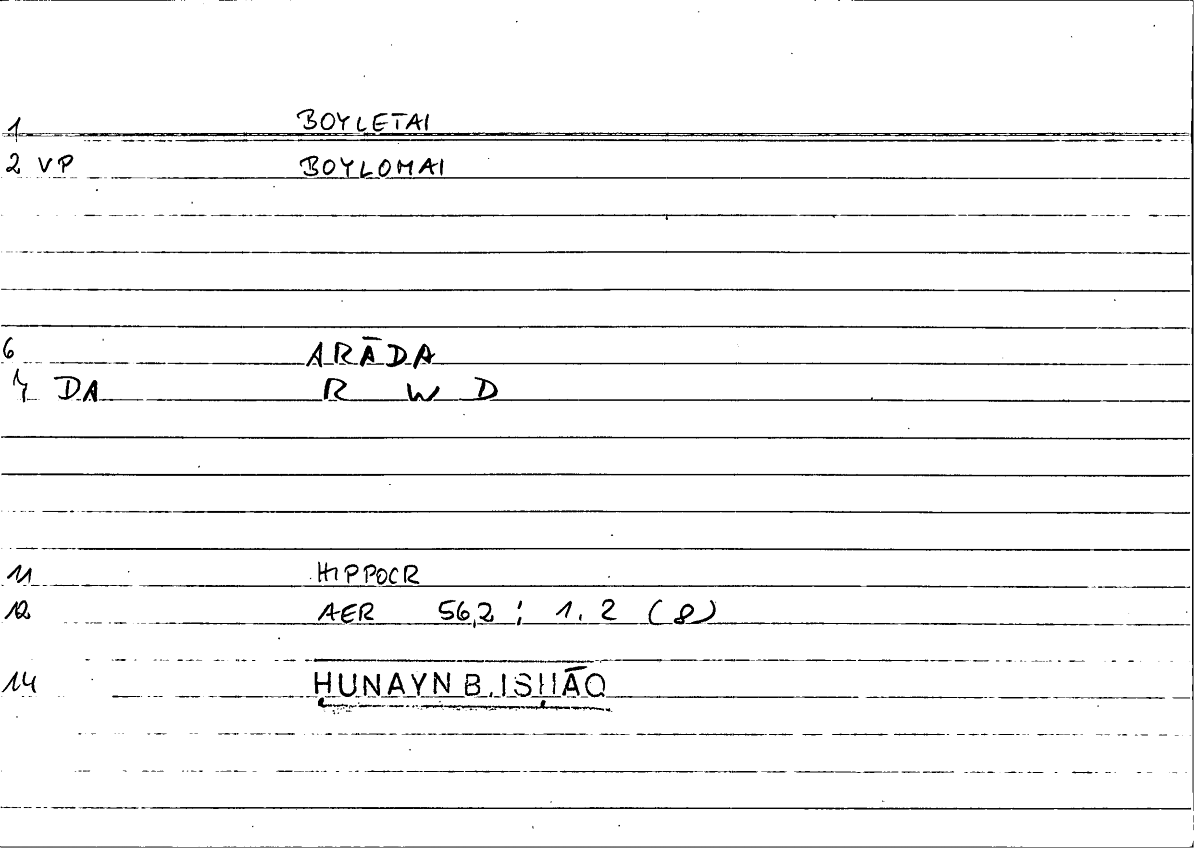 1 BOYLETAI
2 VP BOYLOMAI
6 ARĀDA
7 DA R W D
11 HIPPOCR
12 AER 56,2 ; 1. 2 (8)
14 ḤUNAYN B. ISḤĀQ